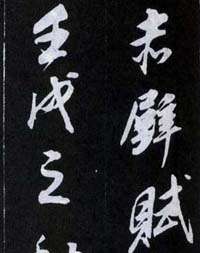 赤壁賦
壬戌之